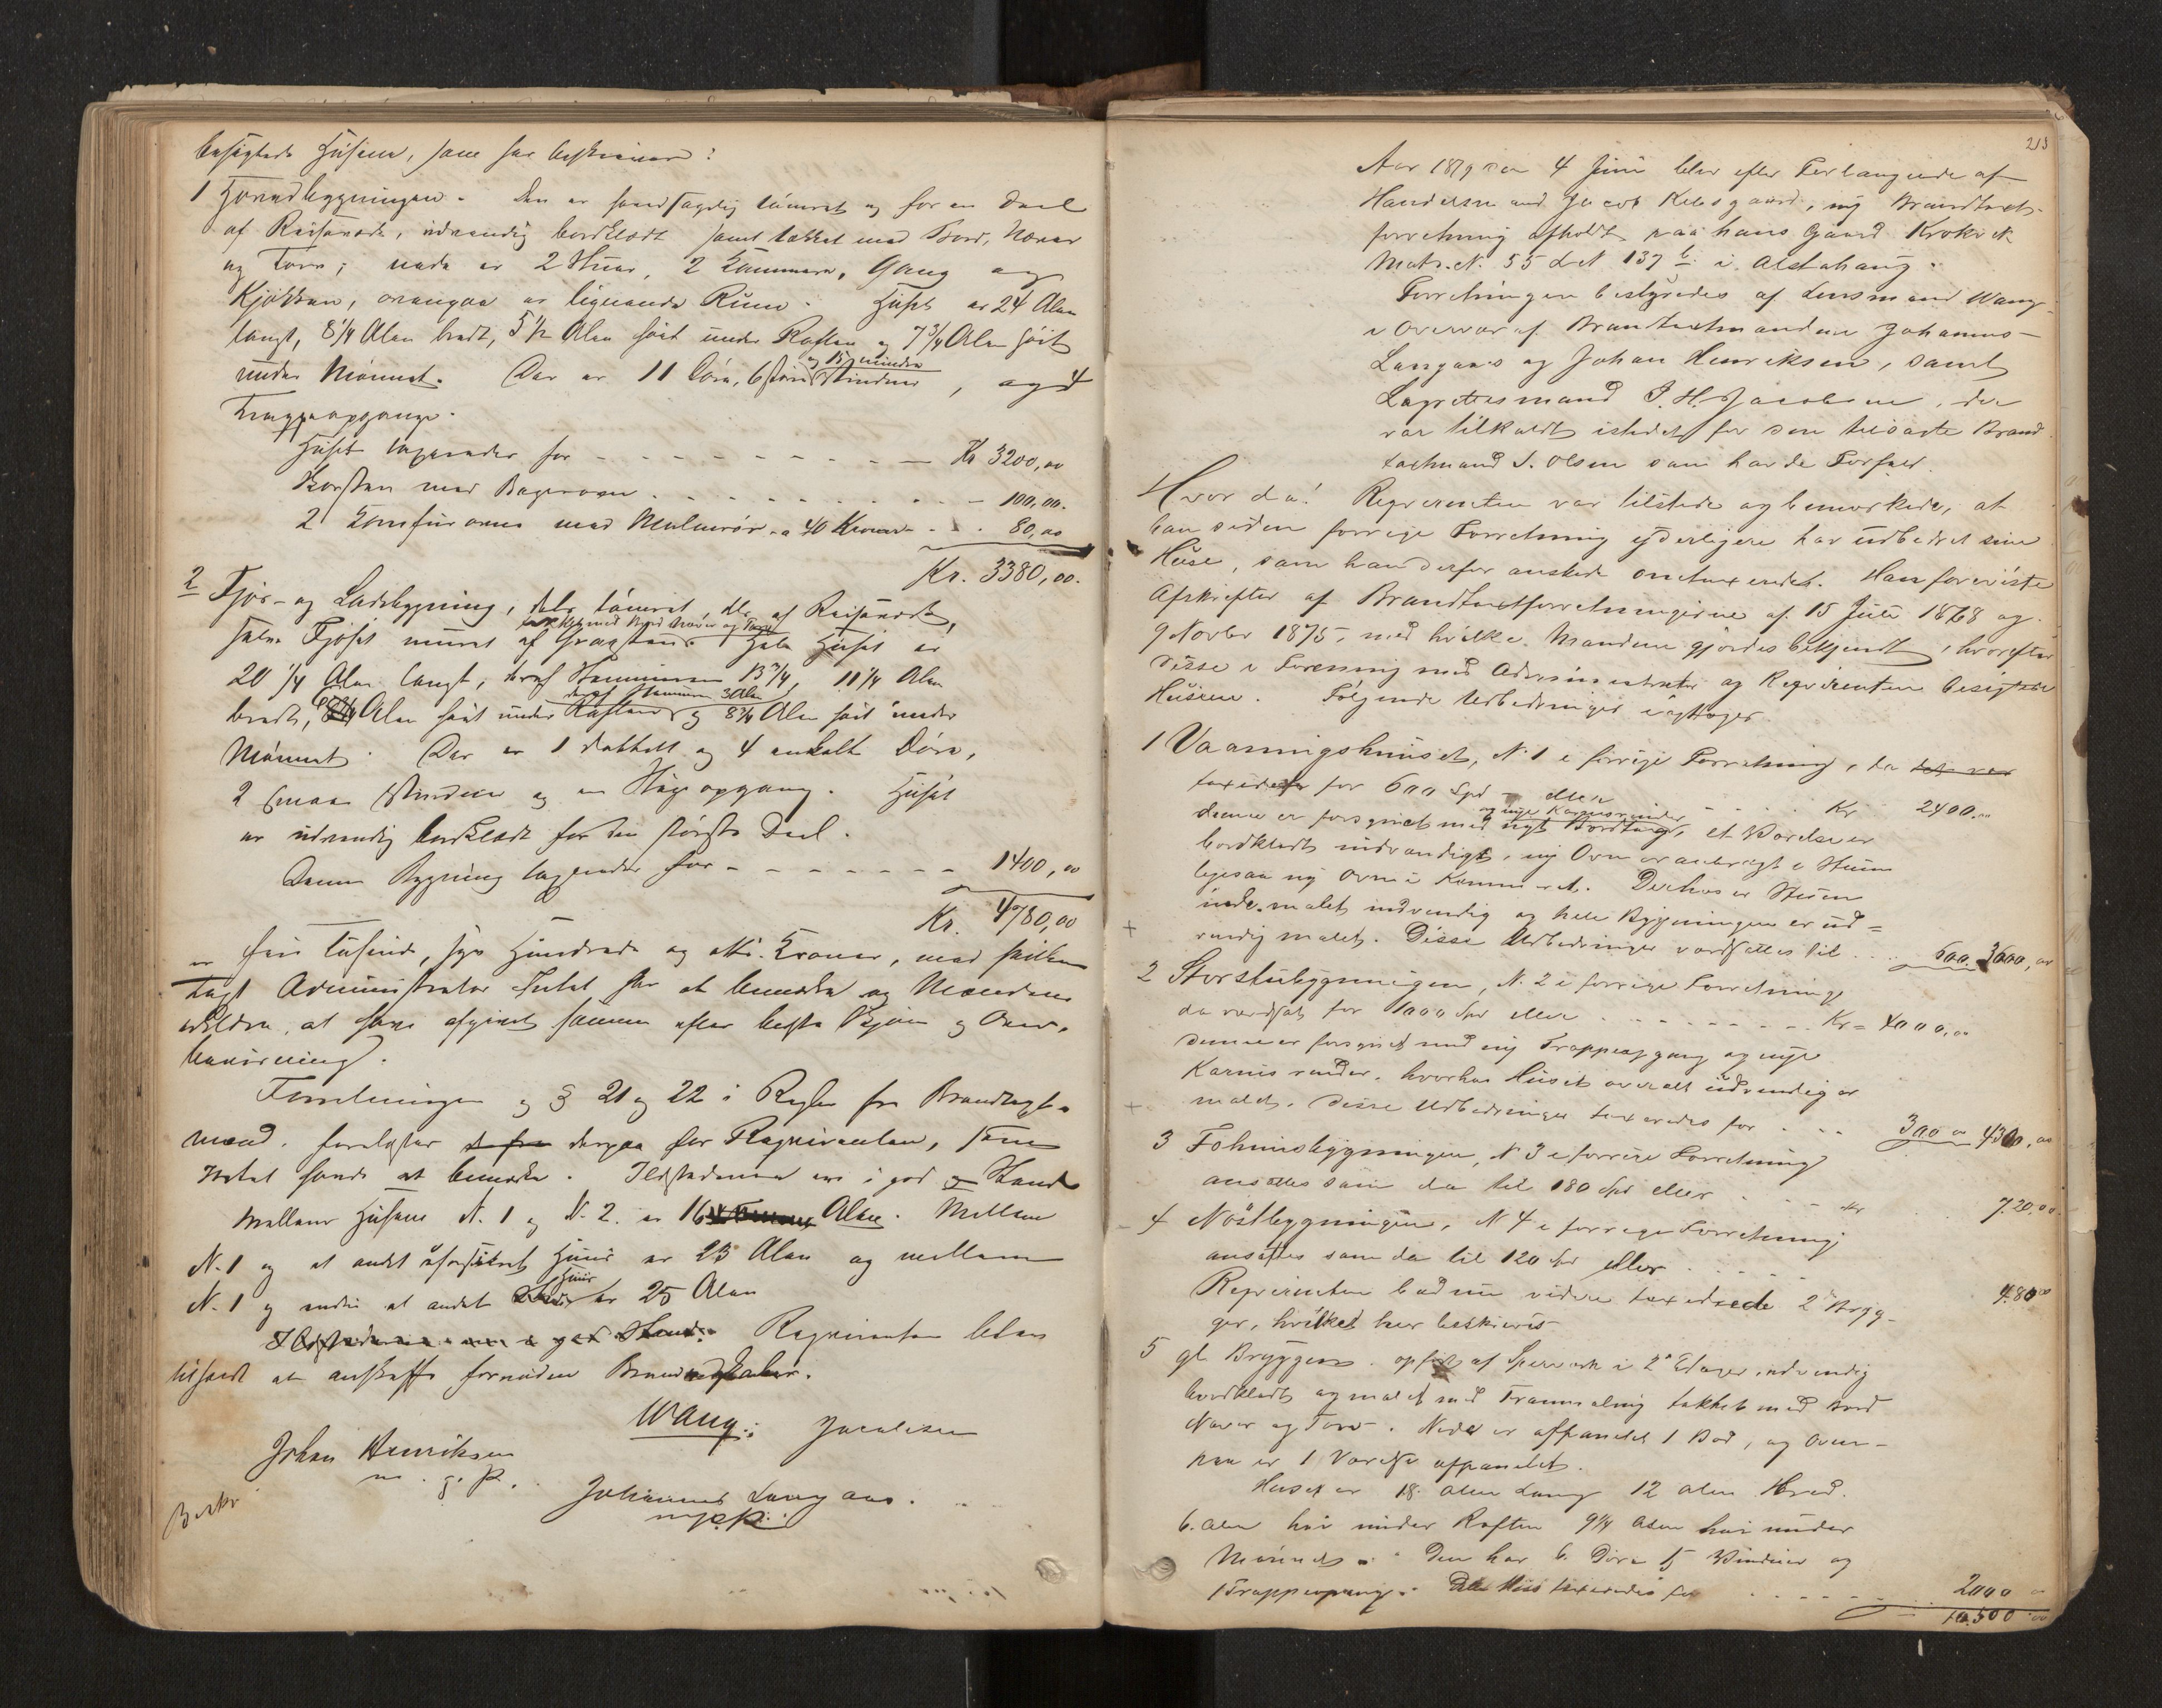 besigtede Husene, som her beskrives:
1 Hovedbygningen. Den er hovedsagelig tømret og for en Deel
af Reisværk, udvendig bordklædt samt tækket med Bord, Næver
og Torv; nede er 2 Stuer, 2 Kammere, Gang og
Kjøkken, ovenpaa er lignende Rum. Huset er 24 Alen
langt, 8 1/4 Alen bredt, 5 1/2 Alen høit under Raften og 7 3/4 Alen høit
under Mønnet. Der er 11 Døre, 6 større og 15 mindre Vinduer, og 4
Trappeopgange.
Huset taxeredes for - - - Kr 3200,00
Korsten med Bagerovn - - - 100,00.
2 Komfurovne med Muurrør a 40 Kroner - - 80,00
Kr. 3380,00.
2 Fjøs- og Ladebygning, dels tømret, dels af Reisværk,
tækket med Bord Næver og Torv
selve Fjøset muret af Graasten. Hele Huset er
20 1/4 Alen langt, deraf 13 3/4, 11 1/4 Alen
bredt, Alen høit under Raften og 8 3/4 Alen høit under
Mønnet. Der er 1 dobbelt og 4 enkelt Døre,
2 smaa Vinduer og en opgang. Huset
er udvendig bordklædt for den største Deel.
Denne Bygning taxeredes for - - - 1400,00
Kr. 4780,00
er fire Tusinde, syv Hundrede og otti Kroner, med hvilken
Taxt Administrator Intet har at bemærke og Mændene
erklære, at have afgivet samme efter bedste Skjøn og Over-
beviisning.
Forretningen og § 21 og 22 i Regler for Brandtaxt-
mænd, forelæstes derpaa for Reqvirenten, som
Intet havde at bemærke. Ildstederne ere i god Stand
Mellem Husene N. 1 og N. 2. er 16 Alen. Mellem
N. 1 og et andet uforsikret Huus er 23 Alen og mellem
N. 1 og endnu et andet Huus er 25 Alen
Ildstederne ere i god Stand. Reqvirenten blev
tilholdt at anskaffe fornøden Brandredskaber.
Wang: Jacobsen
Johan Henriksen
m. g. P.
Johannes Langaas.
m. p. P.
Beskr
213
Aar 1879 den 4 Juni blev efter Forlangende af
Handelsmand Jacob Kelsgaard, ny Brandtaxt-
forretning afholdt paa hans Gaard Kroken
Matr. N. 55 L N 137 b i Alstahaug.
Forretningen bestyredes af Lensmand Wang
i Overvær af Brandtaxtmændene Johannes
Langaas og Johan Henriksen, samt
Lagrettesmand J. H. Jacobsen, der
var tilkaldt istedet for den tilsatte Brand
taxtmand J. Olsen som havde Forfald.
Hvor da! Reqvirenten var tilstede og bemærkede, at
han siden forrige Forretning yderligere har udbedret sine
Huse, som han derfor ønskede omtaxeredet. Han foreviste
Afskrifter af Brandtaxtforretningerne af 15 Juli 1868 og
9 Novbr 1875, med hvilke Mændene gjordes bekjendt, hvorefter
disse i Forening med Administrator og Reqvirenten besigtede
Husene. Følgende Udbedringer iagttoges
1 Vaaningshuuset, N. 1 i forrige Forretning, da det var
taxeredes for 600 Spd eller - - Kr 2400.00
og nye Karnisrender
denne er forsynet med nyt Bordtag, et Værelse er
bordklædt indvendigt, ny Ovn er anbragt i Stuen
ligesaa ny Ovn i Kammeret. Derhos er Stuen
inde malet indvendig og hele Bygningen er ud-
vendig malet. Disse Udbedringer værdsættes til . . . 600. 3000,00
2 Storstubygningen, N. 2 i forrige Forretning
da værdsat for 1000 Spd eller . . . . Kr= 4000,00
denne er forsynet med ny Trappeopgang og nye
Karnisrender, hvorhos Huset overalt udvendig er
malet. Disse Udbedringer taxeredes for . . . 300 00 4300,00
3 Bygningen, N 3 i forrige Forretning
ansættes som da til 180 Spd eller . . . Kr 720.00
4 Nøstbygningen, N 4 i forrige Forretning
ansættes som da til 120 Spd eller . . . 480 00
Reqvirenten bad nu videre taxerede 2de Bryg-
ger, hvilket her beskrives
5 gl Bryggen. opført af Sperverk i 2de Etager, udvendig
bordklædt og malet med Tranmaling tækket med Bord
Næver og Torv. Nede er afpanelet 1 Bod, og Oven-
paa er 1 Værelse afpanelet.
Huset er 18 Alen Lang 12 Alen Bred.
6. Alen høi under Raften 9 1/4 Alen høi under
Mønnet. Den har 6 Døre 15 Vinduer og
1 Trappeopgang. Dette Hus taxeredes for . . . 2000
10,500 00